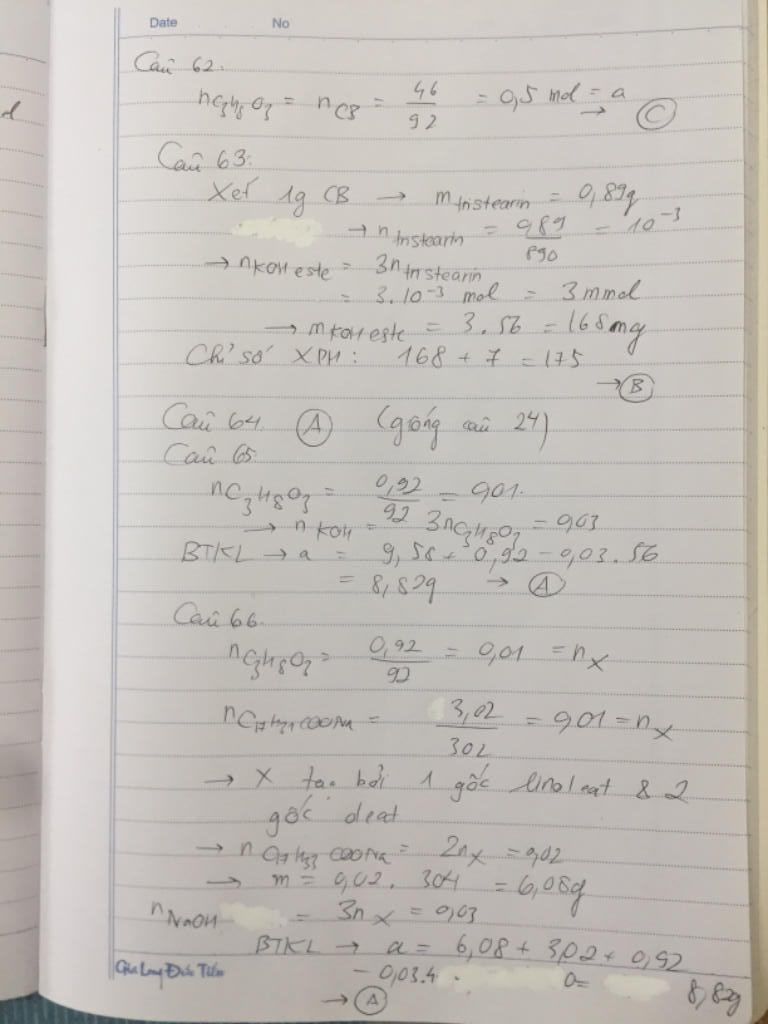 Date No
Câu 62.
nC3H8O3 = nCB = 46/92 = 0,5 mol = a → C
Câu 63:
Xét 1g CB → m tristearin = 0,89g
→ n tristearin = 0,89/890 = 10⁻³
→ nKOH este = 3n tristearin
= 3.10⁻³ mol = 3 mmol
→ mKOH este = 3.56 = 168mg
Chỉ số XPH: 168 + 7 = 175
→ B
Câu 64. A (giống câu 24)
Câu 65.
nC3H8O3 = 0,92/92 = 0,01.
→ nKOH = 3nC3H8O3 = 0,03
BTKL → a = 9,58 + 0,92 - 0,03.56
= 8,82g → A
Câu 66.
nC3H8O3 = 0,92/92 = 0,01 = nX
nC17H31COONa = 3,02/302 = 0,01 = nX
→ X tạo bởi 1 gốc linoleat & 2
gốc oleat
→ nC17H33COONa = 2nX = 0,02
→ m = 0,02. 304 = 6,08g
nNaOH = 3nX = 0,03
BTKL → a = 6,08 + 3,02 + 0,92
- 0,03.4 . a = 8,82g
→ A